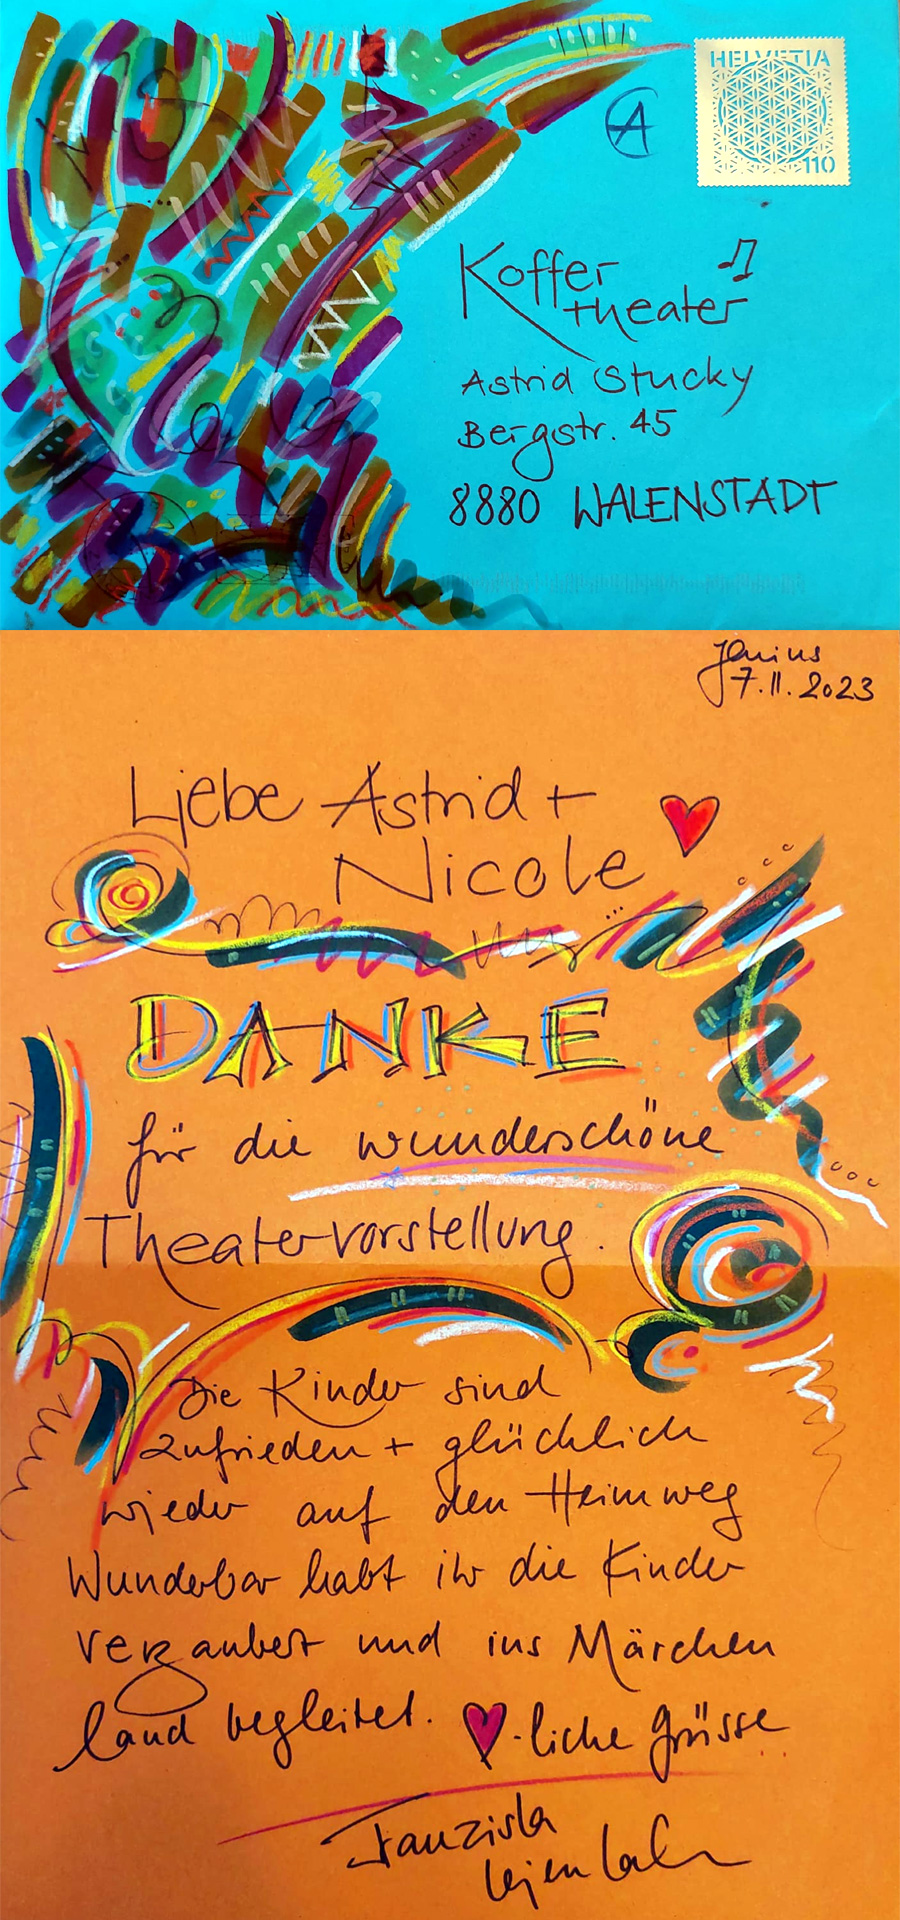 HELVETIA
110
A
Koffer
theater
Astrid Stucky
Bergstr. 45
8880 WALENSTADT
Jenins
7.11.2023
Liebe Astrid +
Nicole
DANKE
für die wunderschöne
Theatervorstellung.
Die Kinder sind
zufrieden + glücklich
wieder auf den Heimweg
Wunderbar habt ihr die Kinder
verzaubert und ins Märchen
land begleitet. ♥-liche Grüsse
Franziska